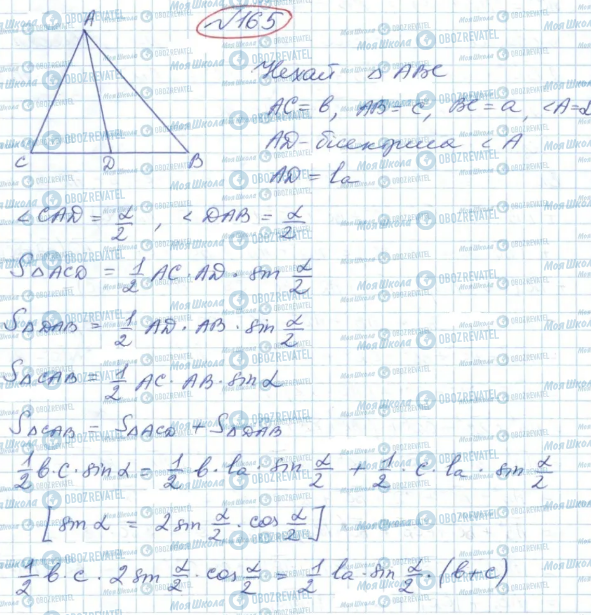 №165
A
C D B
Нехай △ ABC
AC = b, AB = c, BC = a, <A = α
AD - бісектриса < A
AD = la
<CAD = α/2, <DAB = α/2
S△ACD = 1/2 AC · AD · sin α/2
S△DAB = 1/2 AD · AB · sin α/2
S△CAB = 1/2 AC · AB · sin α
S△CAB = S△ACD + S△DAB
1/2 b · c · sin α = 1/2 b · la · sin α/2 + 1/2 · c · la · sin α/2
[sin α = 2 sin α/2 · cos α/2]
1/2 b · c · 2 sin α/2 · cos α/2 = 1/2 la · sin α/2 · (b+c)
Моя Школа
OBOZREVATEL